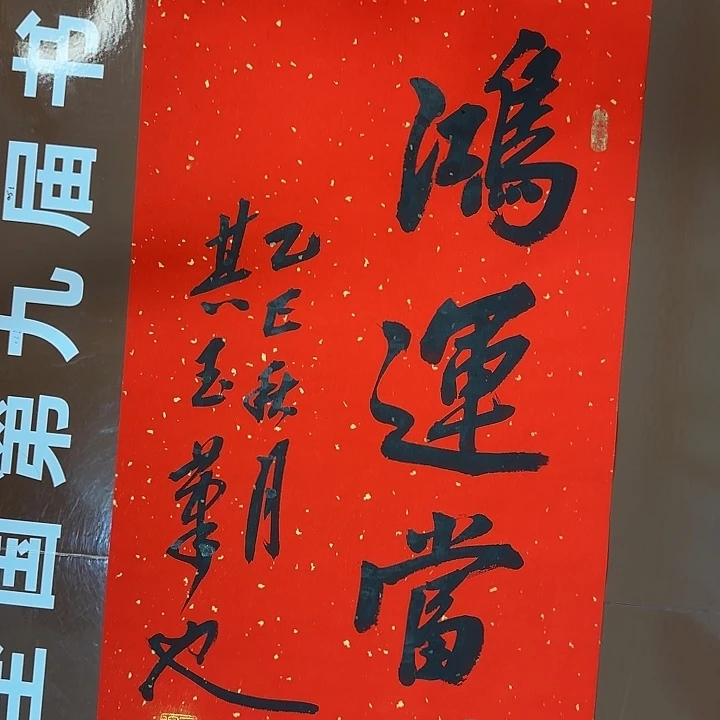 鴻運當
乙巳秋月
其玉筆也
全国第九届书